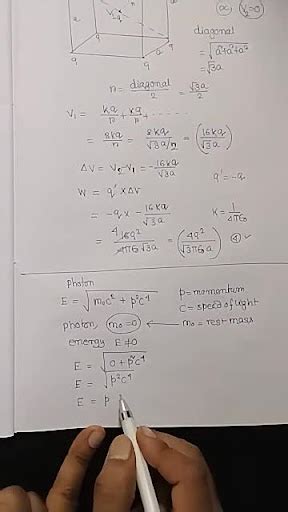 ∞, V₂=0
a
V₁
q
a
a
q
a
q
diagonal
= √a²+a²+a²
= √3a
r = diagonal/2 = √3a/2
V₁ = kq/r + kq/r + ......
= 8kq/r = 8kq/√3a/2 = (16kq/√3a)
ΔV = V₂-V₁ = -16kq/√3a
q' = -q
W = q' × ΔV
= -q × -16kq/√3a
K = 1/4π∈₀
= 4 16q²/4π∈₀√3a = (4q²/√3π∈₀a) ④ ✓
photon
E = √m₀c⁶ + p²c⁴
p = momentum
c = speed of light
photon, m₀=0 ← m₀ = rest mass
energy E≠0
E = √0 + p²c⁴
E = √p²c⁴
E = p